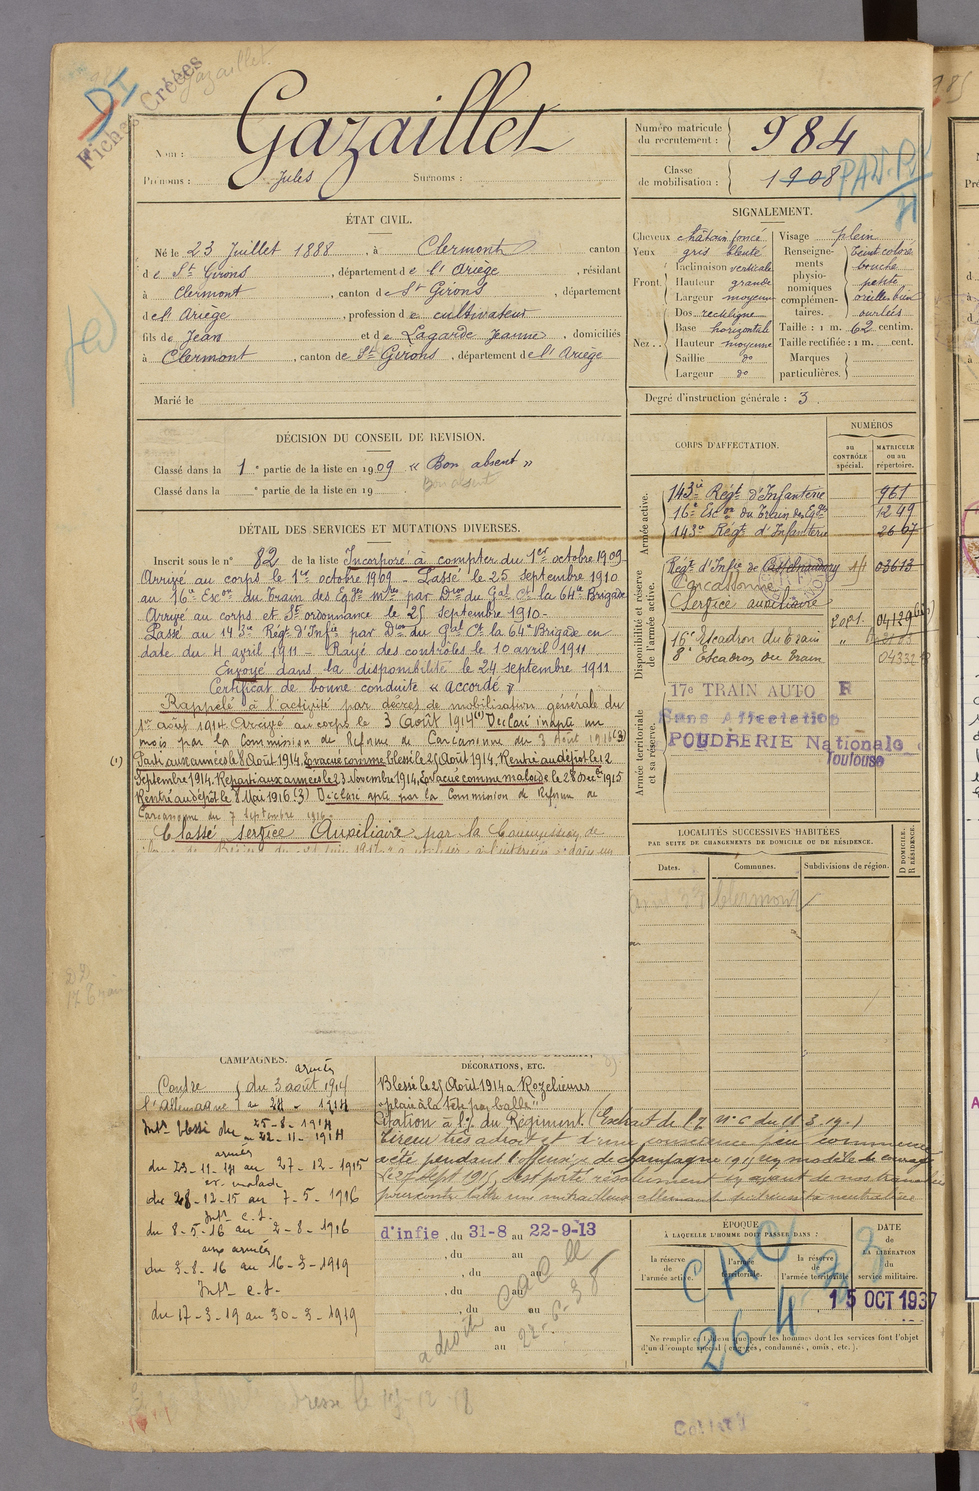 Gazaillet
DI
Fiches Créées
Gazaillet
Nom :
Prénoms : Jules Surnoms :
Numéro matricule du recrutement : 984
Classe de mobilisation : 1908
ÉTAT CIVIL.
Né le 23 Juillet 1888, à Clermont canton
de St Girons, département de l'Ariège, résidant
à Clermont, canton de St Girons, département
de l'Ariège, profession de cultivateur
fils de Jean et de Lagarde Jeanne, domiciliés
à Clermont, canton de St Girons, département de l'Ariège
Marié le
SIGNALEMENT.
Cheveux châtain foncé
Yeux gris bleuté
Front. Inclinaison verticale
Hauteur grande
Largeur moyenne
Nez. Dos rectiligne
Base horizontale
Hauteur moyenne
Saillie do
Largeur do
Visage plein
Renseignements physionomiques complémentaires. Teint coloré
bouche
petite
oreilles bien
ourlées
Taille : 1 m. 62 centim.
Taille rectifiée : 1 m. cent.
Marques particulières.
Degré d'instruction générale : 3.
DÉCISION DU CONSEIL DE REVISION.
Classé dans la 1e partie de la liste en 1909 « Bon absent »
Bon absent
Classé dans la e partie de la liste en 19
DÉTAIL DES SERVICES ET MUTATIONS DIVERSES.
Inscrit sous le n° 82 de la liste Incorporé à compter du 1er octobre 1909
Arrivé au corps le 1er octobre 1909 - Passé le 25 septembre 1910
au 16e Escon du Train des Eqges mres par Dcon du Gal Ct la 64e Brigade
Arrivé au corps et St ordonnance le 25 septembre 1910 -
Passé au 143e Régt d'Infie par Dcon du Gal Ct la 64e Brigade en
date du 4 avril 1911 - Rayé des contrôles le 10 avril 1911
Envoyé dans la disponibilité le 24 septembre 1911
Certificat de bonne conduite « accordé »
Rappelé à l'activité par décret de mobilisation générale du
1er août 1914 Arrivé au corps le 3 Août 1914 (1) Déclaré inapte un
mois par la Commission de Réforme de Carcassonne du 3 Août 1916 (3)
(1) Parti aux armées le 8 Août 1914. Evacué comme blessé le 25 Août 1914. Rentré au dépôt le 12
Septembre 1914. Reparti aux armées le 23 Novembre 1914. Evacué comme malade le 28 Décbre 1915
Rentré au dépôt le 8 Mai 1916 (3) Déclaré apte par la Commission de Réforme de
Carcassonne du 7 septembre 1916 -
Classé Service Auxiliaire par la Commission de
CORPS D'AFFECTATION.
NUMÉROS
au CONTRÔLE spécial.
MATRICULE ou au répertoire.
Armée active.
143e Régt d'Infanterie 961
16e Escon du Train des Eqges 1249
143e Régt d'Infanterie 2667
Disponibilité et réserve de l'armée active.
Régt d'Infie de Castelnaudary 03613
Carcassonne
Service auxiliaire
16e Escadron du train
8e Escadron du train
Armée territoriale et sa réserve.
17e TRAIN AUTO R
Sans Affectation
POUDRERIE Nationale
Toulouse
LOCALITÉS SUCCESSIVES HABITÉES
PAR SUITE DE CHANGEMENTS DE DOMICILE OU DE RÉSIDENCE.
D DOMICILE. R RÉSIDENCE.
Dates. Communes. Subdivisions de région.
Clermont
CAMPAGNES.
Contre l'Allemagne
armées
du 3 août 1914
au 24 - 1914
Intr blessé du 25-8-1914
au 22-11-1914
armées
du 23-11-14 au 27-12-1915
év. malade
du 28-12-15 au 7-5-1916
Intr c.s.
du 8-5-16 au 2-8-1916
aux armées
du 3-8-16 au 16-3-1919
Intr c.s.
du 17-3-19 au 30-3-1919
DÉCORATIONS, ETC.
Blessé le 25 Août 1914 à Rozelieures
"plaie à la tête par balle"
Citation à l'o. du Régiment.
très adroit et d'une conscience peu commune
a été pendant l'offensive de Champagne 1915 un modèle de courage
Le 27 sept 1915, s'est porté résolument en avant de nos tranchées
d'infie, du 31-8 au 22-9-13
, du au
, du au
, du au
, du au
au
au
22-6-38
ÉPOQUE
À LAQUELLE L'HOMME DOIT PASSER DANS :
la réserve de l'armée active.
l'armée territoriale.
la réserve de l'armée territoriale
DATE de LA LIBÉRATION du service militaire.
15 OCT 1937
CHO
26-4
Ne remplir ce tableau que pour les hommes dont les services font l'objet
d'un décompte spécial (engagés, condamnés, omis, etc.).